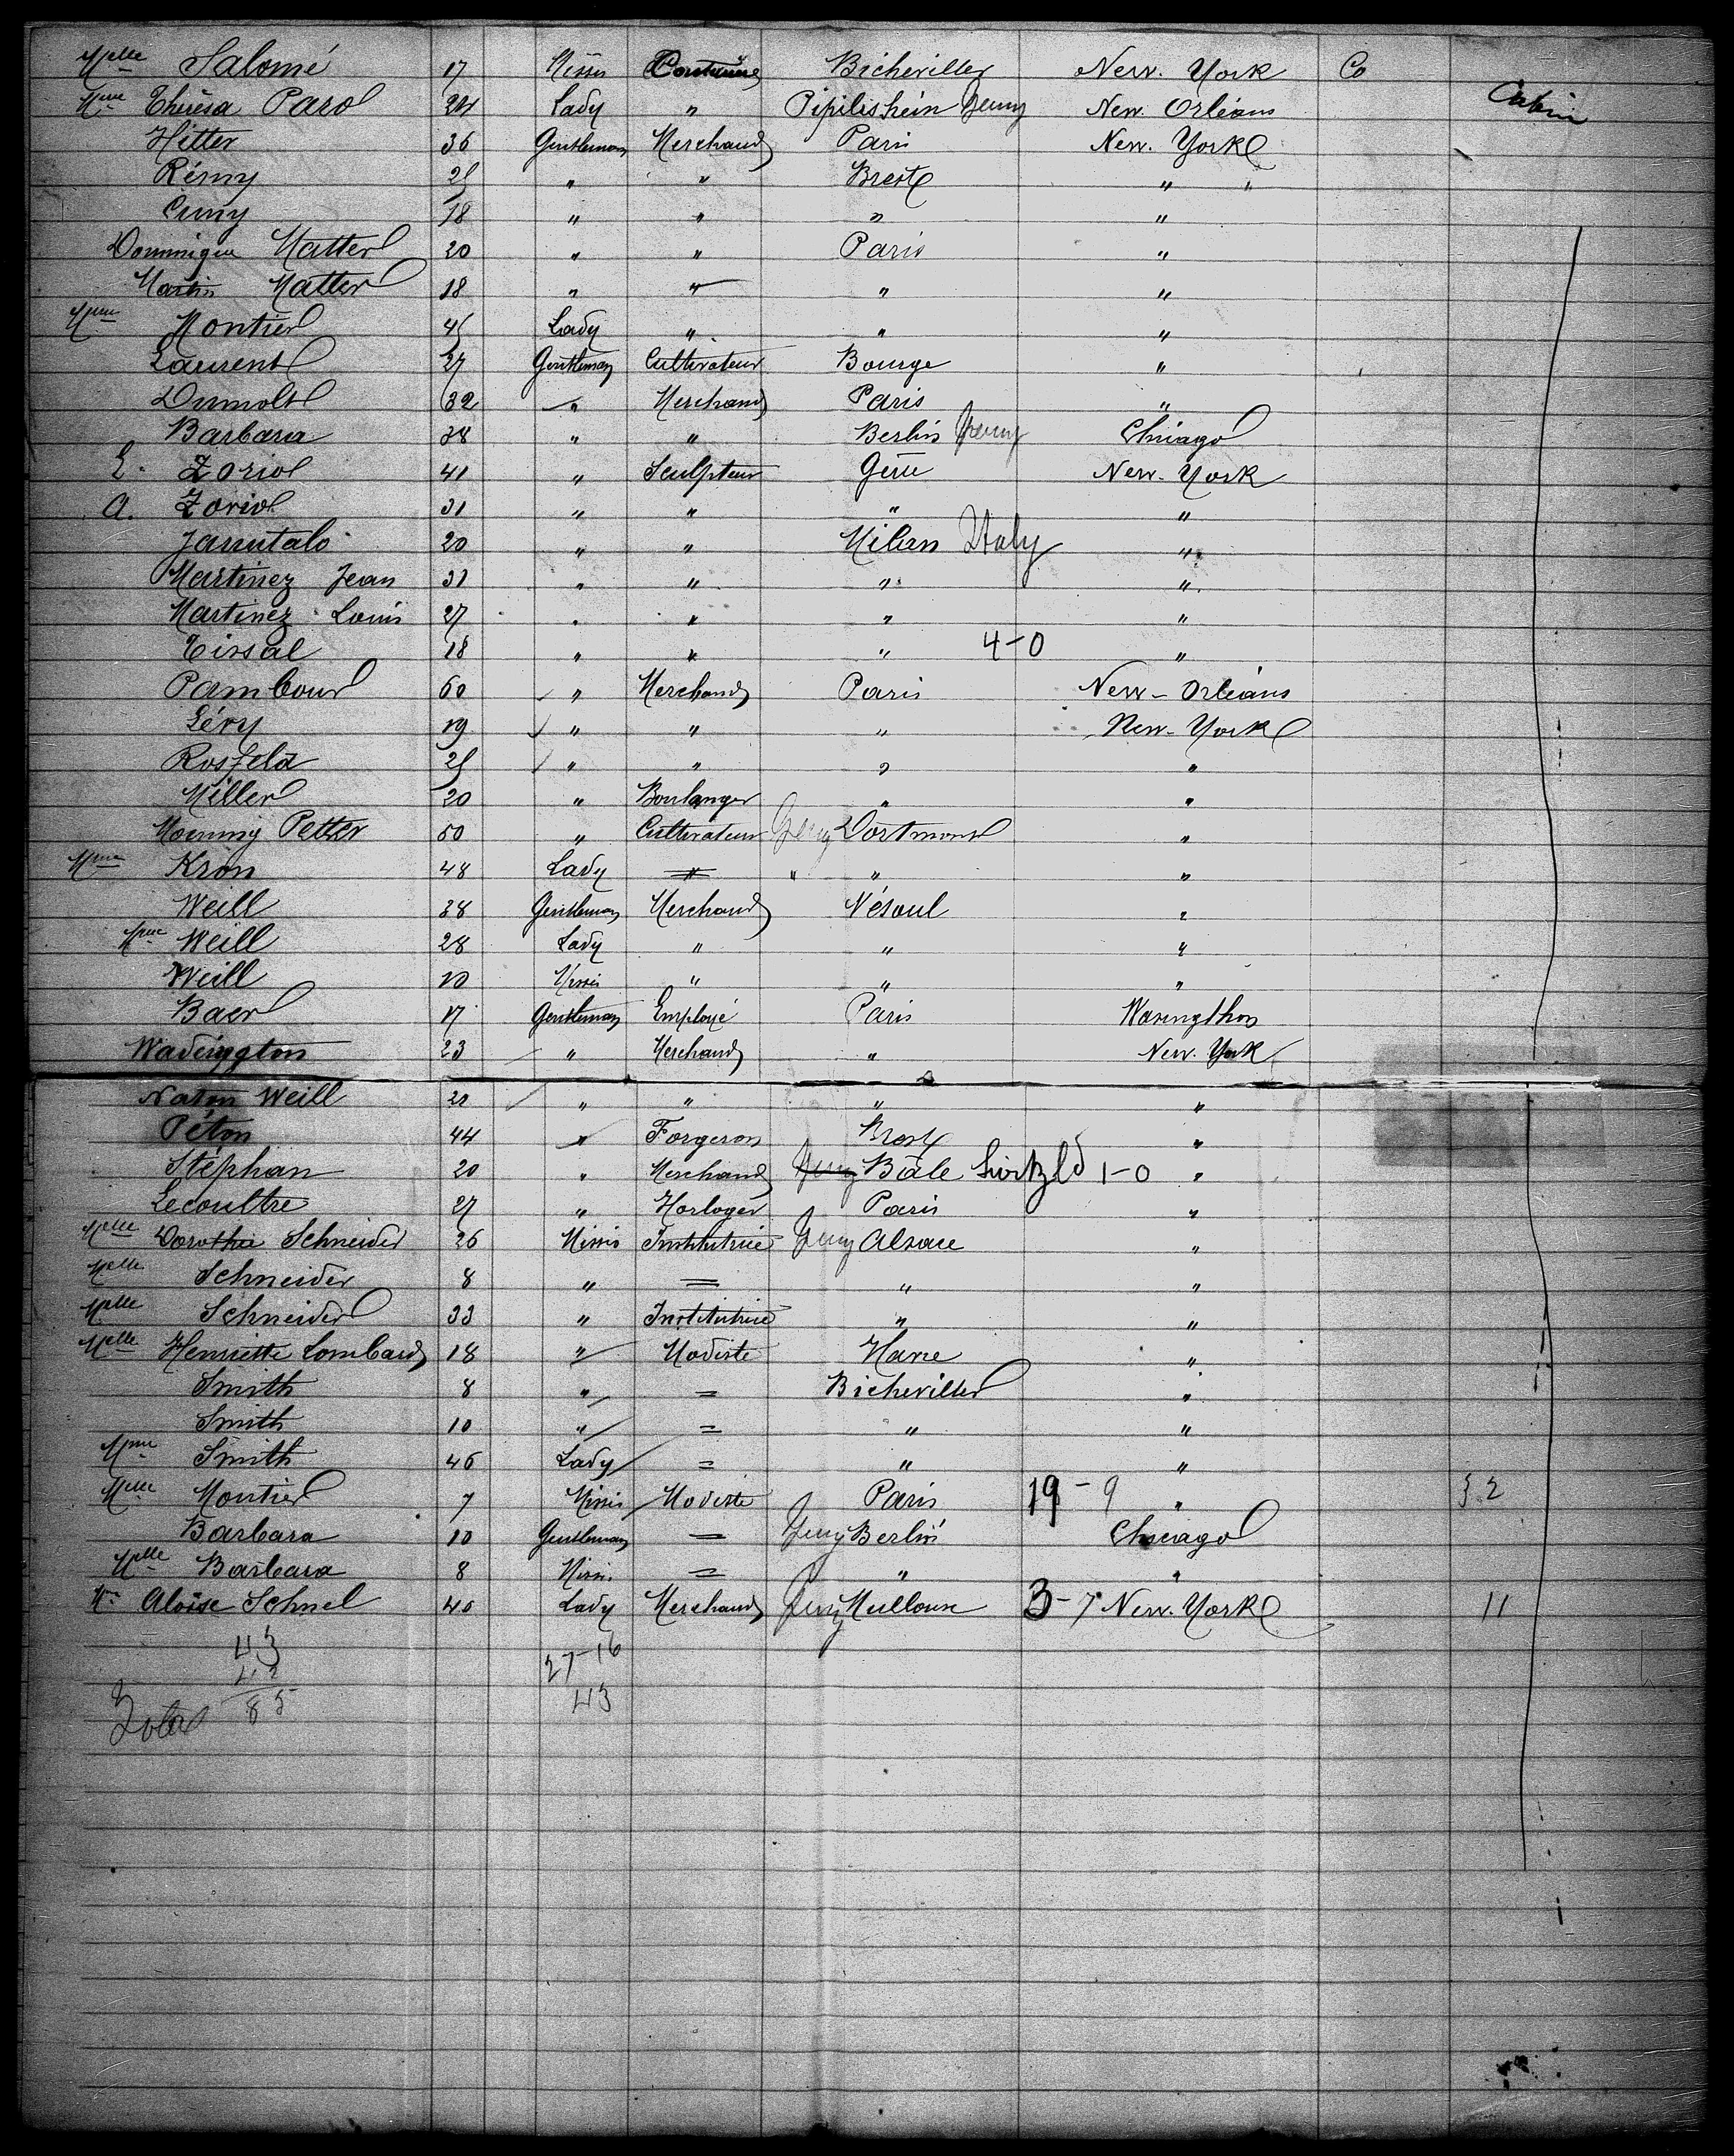 Melle Salomé 17 Missis Couturière Bicheviller New. York Co
Mme Thérèsa Parot 24 Lady " Pipilishein Germy New. Orléans Cabin
Hitter 36 Gentleman Merchand Paris New. York
Rémy 25 " " Brest " "
Cuny 18 " " " "
Dominique Matter 20 " " Paris "
Martin Matter 18 " " " "
Mme Montier 45 Lady " " "
Laurent 27 Gentleman Cultivateur Bourge "
Dumolt 32 " Merchand Paris "
Barbara 38 " " Berlin Germy Chicago
E. Zoriol 41 " Sculpteur New. York
A. Zoriol 31 " " " "
20 " " Milan Italy "
Martinez Jean 31 " " " "
Martinez Louis 27 " " " "
Tissal 18 " " " 4-0 "
Pambour 60 " Merchand Paris New-Orléans
Lévy 19 " " " New-York
Rosfeld 25 " " " "
Miller 20 " Boulanger " "
Petter 50 " Cultivateur Germy Dortmond "
Mme Kron 48 Lady " " " "
Weill 38 Gentleman Merchand Vésoul "
Mme Weill 28 Lady " " "
Weill 10 Missis " " "
Baer 17 Gentleman Employé Paris Wasingthon
Wadington 23 " Merchand " New. York
Naton Weill 21 " " " "
Péton 44 " Forgeron Brest "
Stéphan 20 " Merchand Germy Bâle Switzld 1-0 "
Lecoultre 27 " Horloger Paris "
Melle Dorothée Schneider 26 Missis Institutrice Germy Alsace "
Melle Schneider 8 " = " "
Melle Schneider 33 " Institutrice " "
Melle Henriette Lombard 18 " Modiste Havre "
Smith 8 " = Bicheviller "
Smith 10 " = " "
Mme Smith 46 Lady = " "
Melle Montier 7 Missis Modiste Paris 19-9 " } 2
Barbara 10 Gentleman = Germy Berlin Chicago
Melle Barbara 8 Missis = " "
Mme Aloïse Schnel 40 Lady Merchand Germy Mullouse 3-7 New. York 11
43 27-16
42 43
Total 85